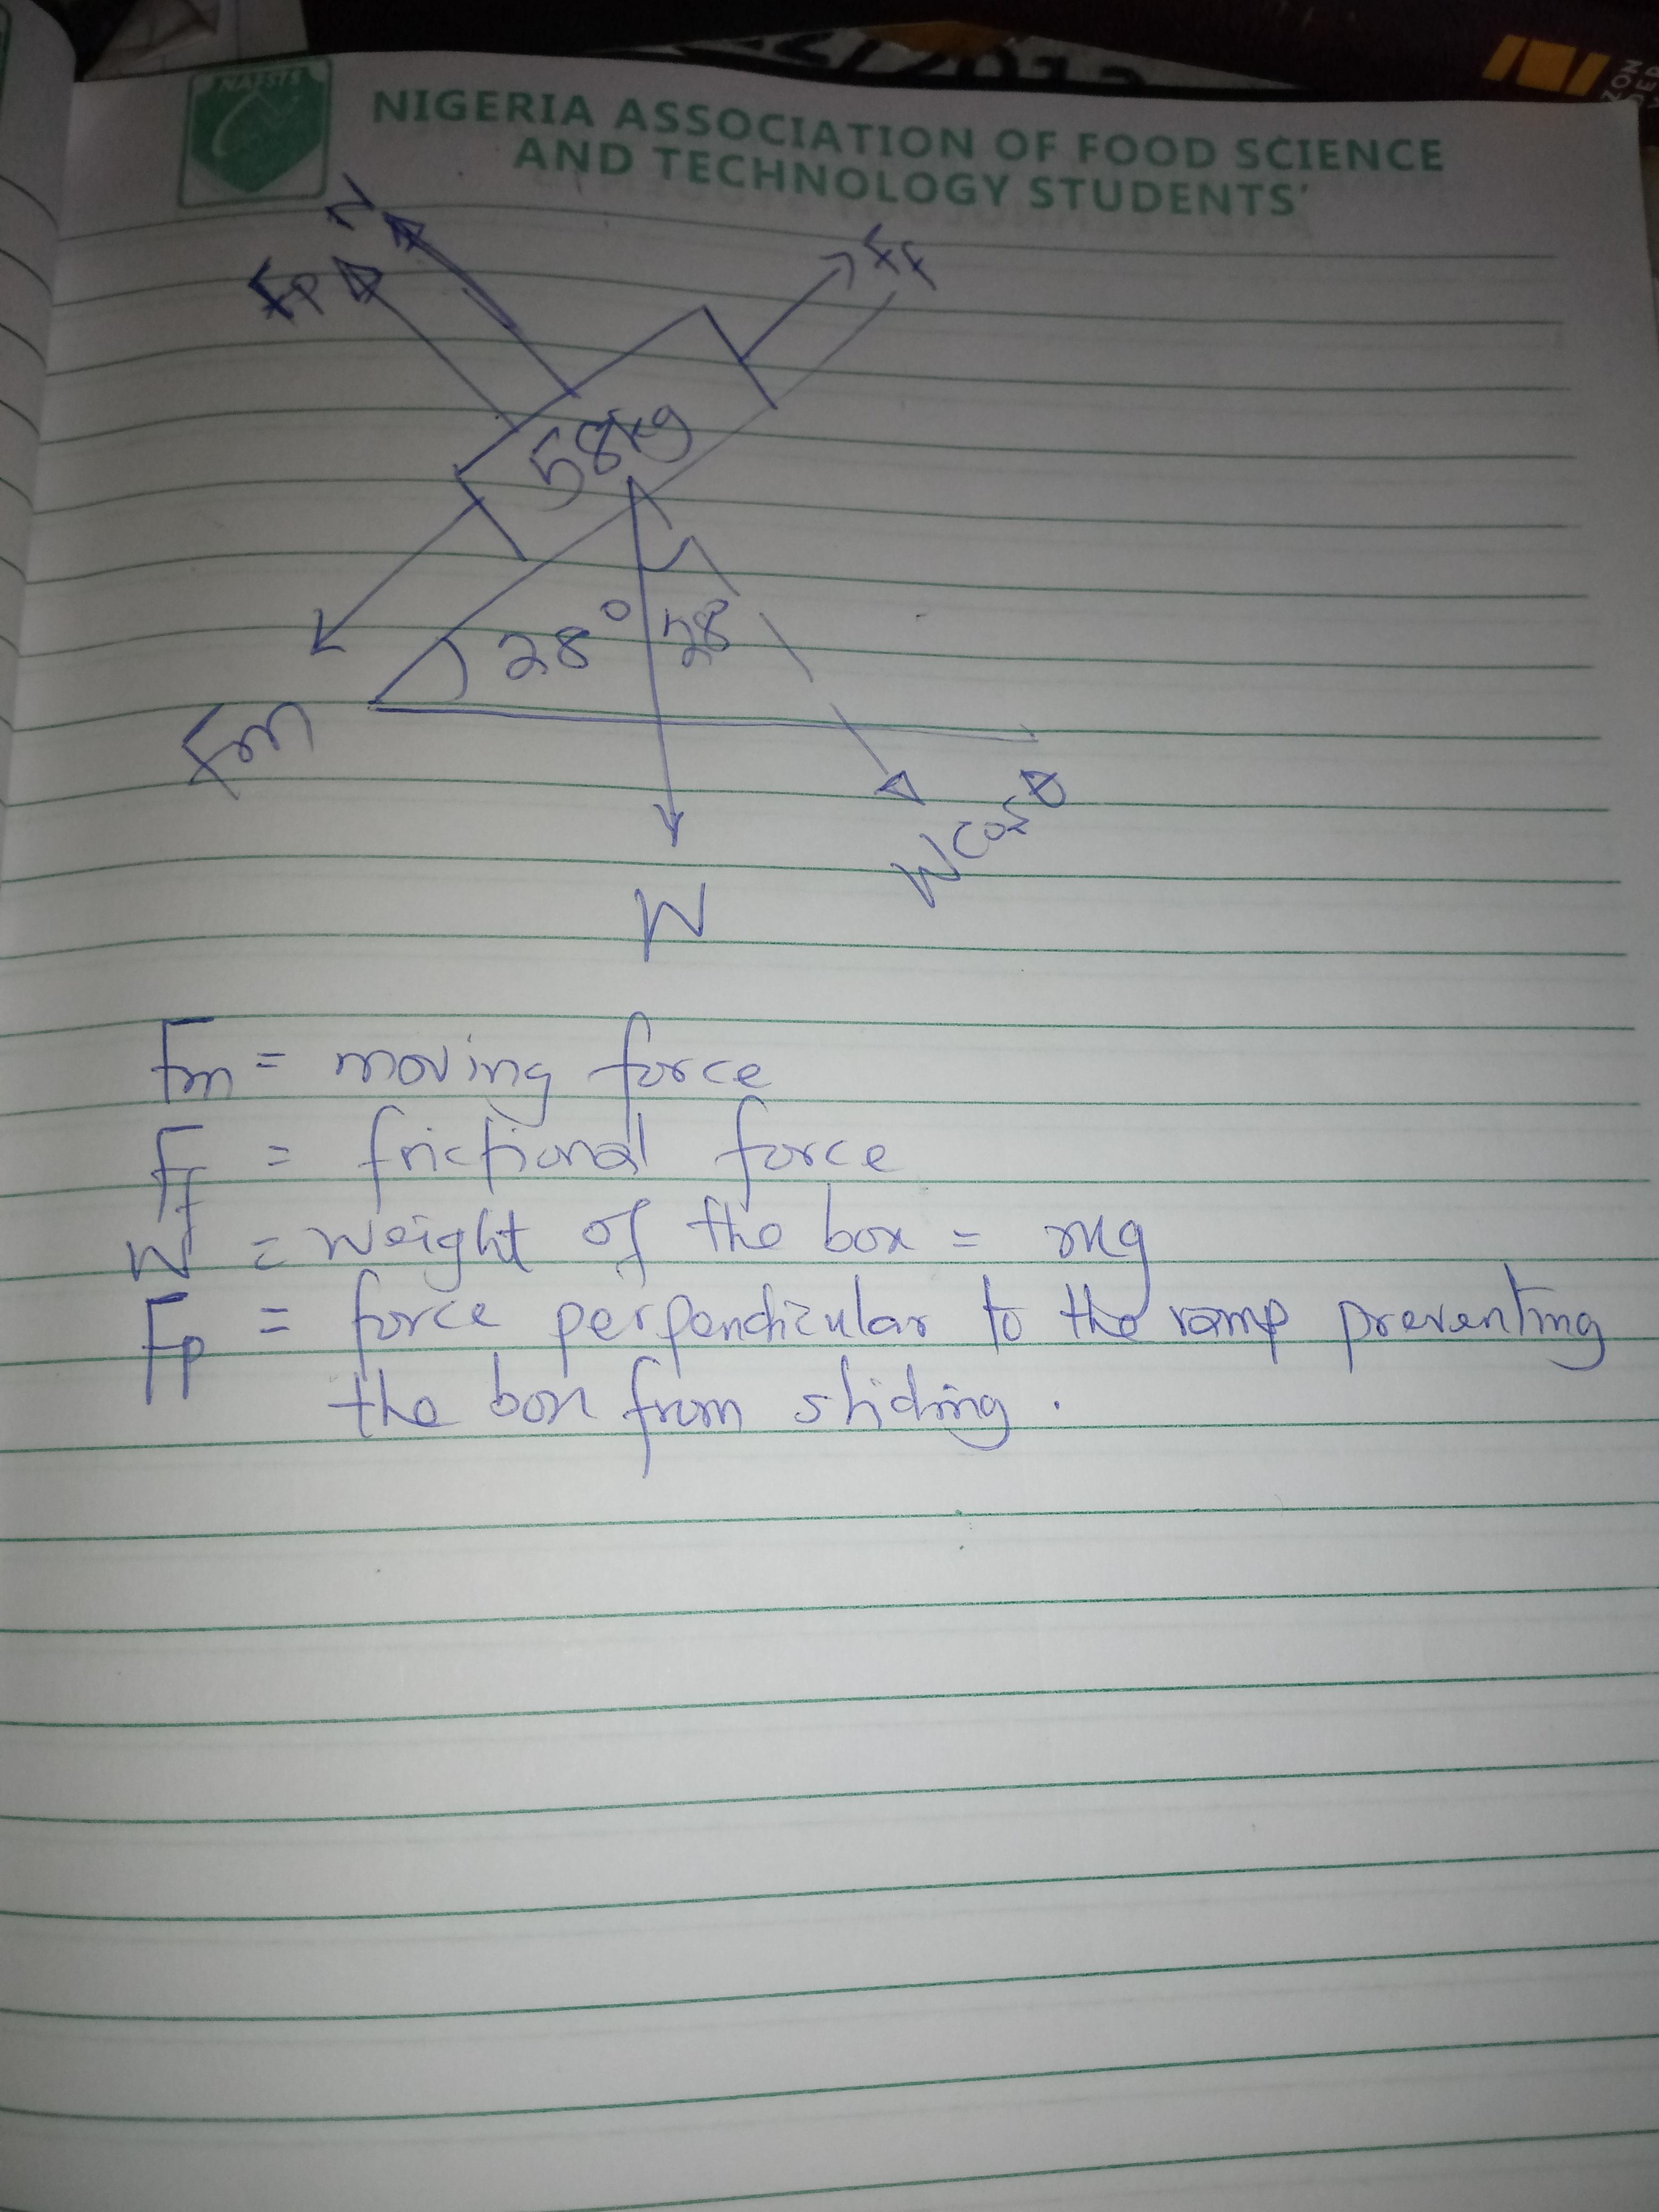 NAFSTS
NIGERIA ASSOCIATION OF FOOD SCIENCE
AND TECHNOLOGY STUDENTS'
N
Fp
Ff
58kg
28°
28
Fm
Wcosθ
W
Fm = moving force
Ff = frictional force
W = weight of the box = mg
Fp = force perpendicular to the ramp preventing
the box from sliding.